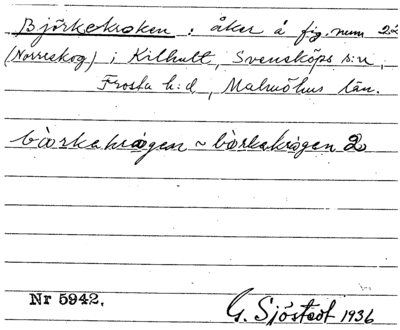 Björkekroken : åker å fig. num 22
(Norreskog) i Kilhult, Svensköps s:n,
Frosta h:d, Malmöhus län.
bȯrkakrȧgen ~ bȯrkakrȧgen 2
Nr 5942.
G. Sjöstedt 1936